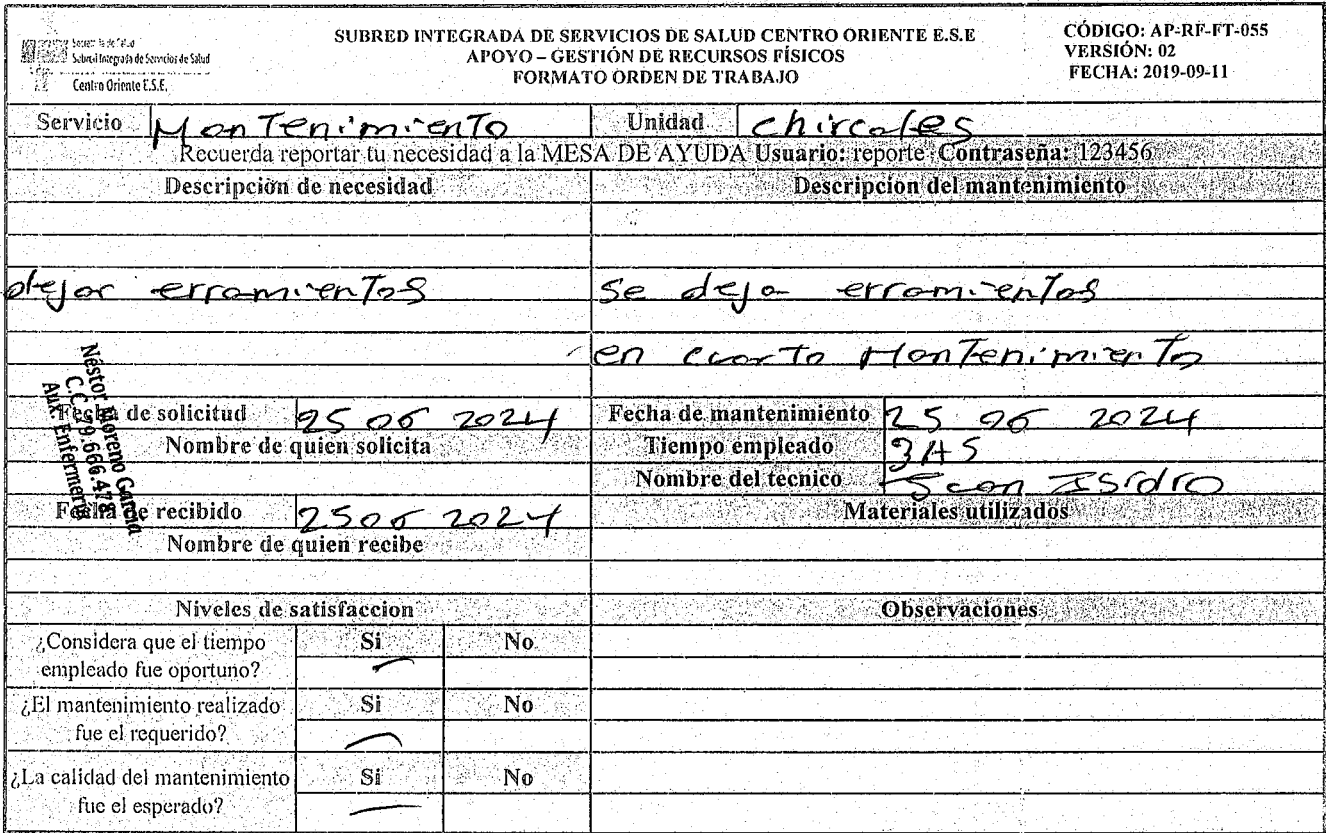 Subred Integrada de Servicios de Salud
Centro Oriente E.S.E.
SUBRED INTEGRADA DE SERVICIOS DE SALUD CENTRO ORIENTE E.S.E
APOYO – GESTIÓN DE RECURSOS FÍSICOS
FORMATO ORDEN DE TRABAJO
CÓDIGO: AP-RF-FT-055
VERSIÓN: 02
FECHA: 2019-09-11
Servicio Mantenimiento Unidad chircales
Recuerda reportar tu necesidad a la MESA DE AYUDA Usuario: reporte Contraseña: 123456
Descripción de necesidad Descripcion del mantenimiento
dejar erramientas se deja erramientas
en cuarto Mantenimiento
Néstor Moreno García
C.C. 79.666.478
Aux. Enfermería
Fecha de solicitud 25 06 2024 Fecha de mantenimiento 25 06 2024
Nombre de quien solicita Tiempo empleado 3HS
Nombre del tecnico Isidro
Fecha de recibido 25 06 2024 Materiales utilizados
Nombre de quien recibe
Niveles de satisfaccion Observaciones
¿Considera que el tiempo Si No
empleado fue oportuno?
¿El mantenimiento realizado Si No
fue el requerido?
¿La calidad del mantenimiento Si No
fue el esperado?